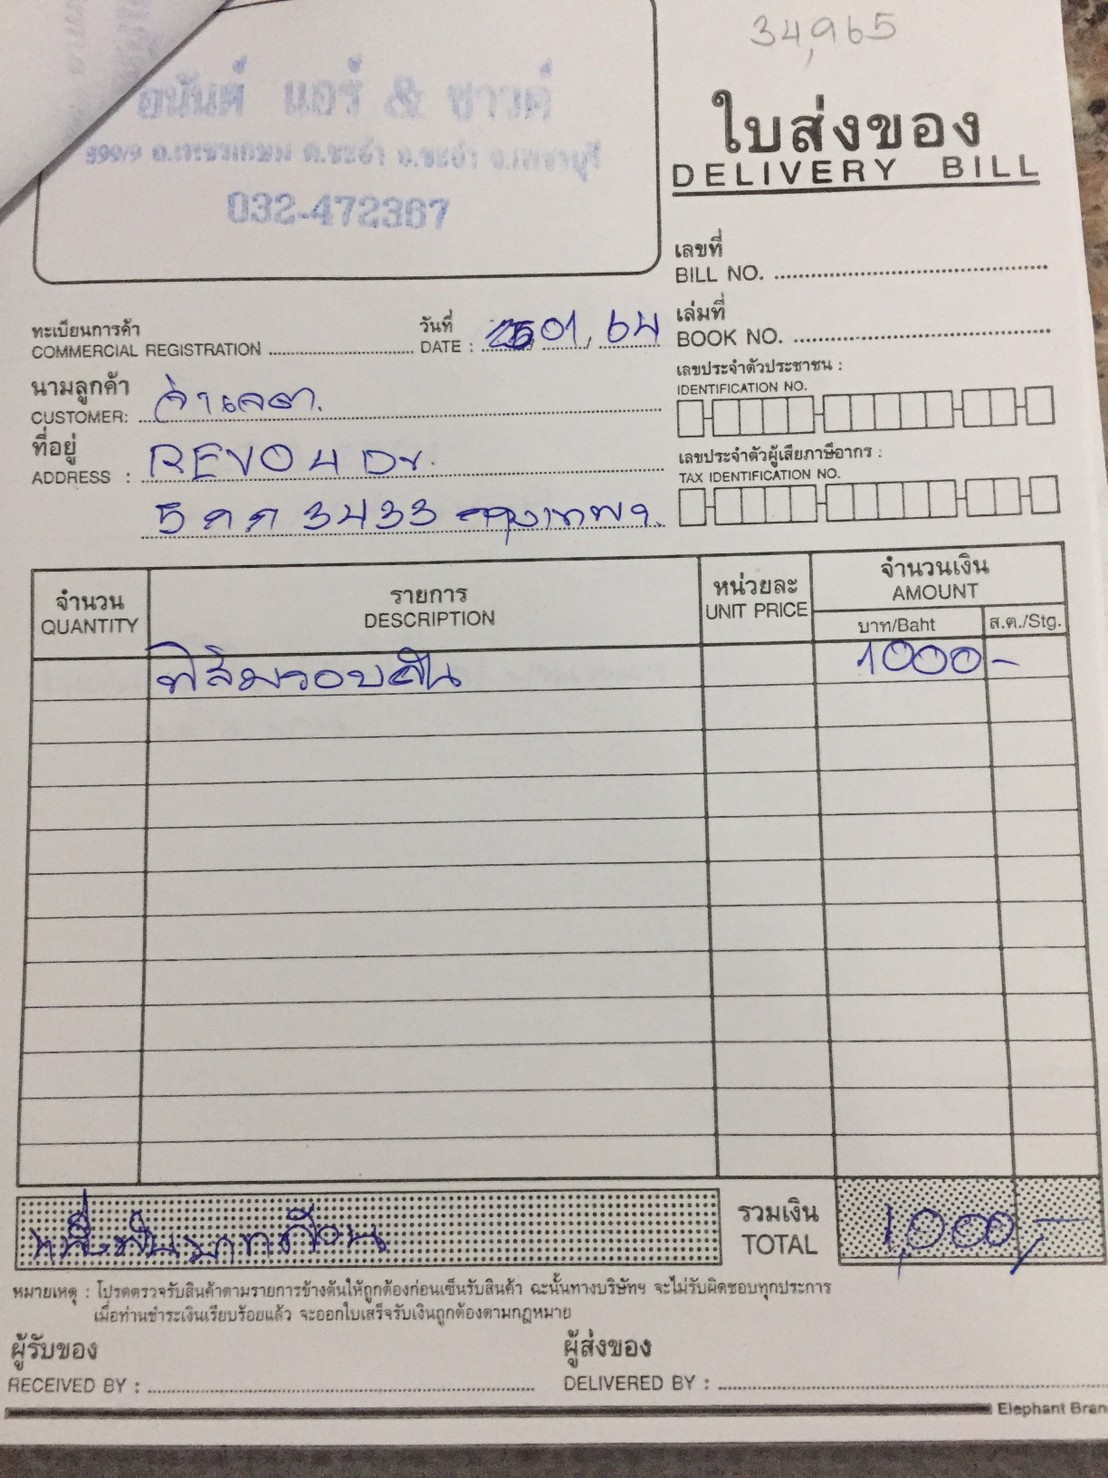 34,965
อนันต์ แอร์ & ซาวด์
999/9 ถ.เพชรเกษม ต.ชะอำ อ.ชะอำ จ.เพชรบุรี
032-472367
ใบส่งของ
DELIVERY BILL
เลขที่
BILL NO.
เล่มที่
BOOK NO.
ทะเบียนการค้า
COMMERCIAL REGISTRATION
วันที่
DATE : 25, 01, 64
นามลูกค้า
CUSTOMER:
ที่อยู่
ADDRESS : REVO 4 Dr.
5 กก 3433 กรุงเทพฯ
เลขประจำตัวประชาชน :
IDENTIFICATION NO.
เลขประจำตัวผู้เสียภาษีอากร :
TAX IDENTIFICATION NO.
จำนวน
QUANTITY
รายการ
DESCRIPTION
หน่วยละ
UNIT PRICE
จำนวนเงิน
AMOUNT
บาท/Baht ส.ต./Stg.
ฟิล์มรอบคัน 1000 -
หนึ่งพันบาทถ้วน
รวมเงิน
TOTAL 1,000,-
หมายเหตุ : โปรดตรวจรับสินค้าตามรายการข้างต้นให้ถูกต้องก่อนเซ็นรับสินค้า ฉะนั้นทางบริษัทฯ จะไม่รับผิดชอบทุกประการ
เมื่อท่านชำระเงินเรียบร้อยแล้ว จะออกใบเสร็จรับเงินถูกต้องตามกฎหมาย
ผู้รับของ
RECEIVED BY :
ผู้ส่งของ
DELIVERED BY :
Elephant Bran